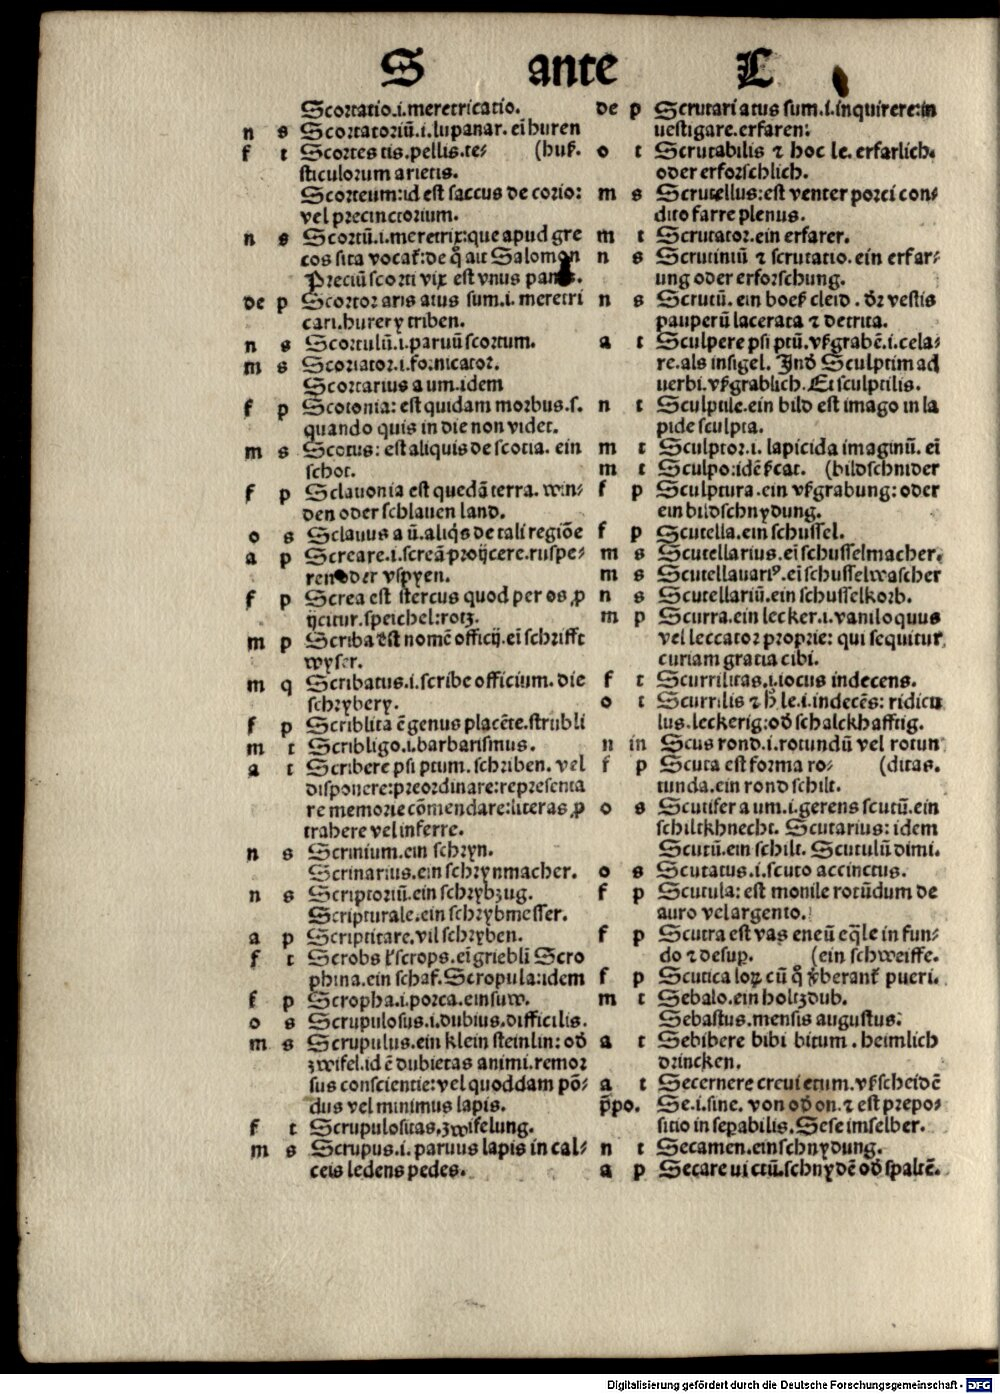 S ante L
Scortatio.i.meretricatio.
n s Scortatoriū.i.lupanar. eī huren
f t Scortes tis.pellis.te⸗ (huß.
sticulorum arietis.
Scorteum:id est saccus de corio:
vel precinctorium.
n s Scortū.i.meretrix:que apud gre
cos sita vocat̄:de q̊ ait Salomon
Preciū scorti vix est vnus panis.
de p Scortor aris atus sum.i. meretri
cari.hurery triben.
n s Scortulū.i.paruū scortum.
m s Scortator.i.fornicator.
Scortarius a um.idem
f p Scotonia: est quidam morbus.s.
quando quis in die non videt.
m s Scotus: est aliquis de scotia. ein
schot.
f p Sclauonia est quedā terra. win⸗
den oder schlauen land.
o s Sclauus a ū.aliq̇s de tali regiōe
a p Screare.i.screā proijcere.ruspe⸗
ren oder vspyen.
f p Screa est stercus quod per os ꝓ
ijcitur.speichel:rotz.
m p Scriba est nomē officij.eī schrifft
wyser.
m q Scribatus.i.scribe officium. die
schrybery.
f p Scriblita ē genus placēte.strubli
m t Scribligo.i.barbarismus.
a t Scribere psi ptum. schriben. vel
disponere:preordinare:representa
re memorie cōmendare:literas ꝓ
trahere vel inferre.
n s Scrinium.ein schryn.
Scrinarius.ein schrynmacher.
n s Scriptoriū.ein schrybzug.
Scripturale.ein schrybmesser.
a p Scriptitare.vil schryben.
f t Scrobs ł scrops.eī griebli Scro
phina.ein schaf.Scropula:idem
f p Scropha.i.porca.ein suw.
o s Scrupulosus.i.dubius.difficilis.
m s Scrupulus.ein klein steinlin: od̄
zwifel.id ē dubietas animi.remor
sus conscientie:vel quoddam pō⸗
dus vel minimus lapis.
f t Scrupulositas.zwifelung.
m s Scrupus.i.paruus lapis in cal⸗
ceis ledens pedes.
de p Scrutari atus sum.i.inquirere:in
uestigare.erfaren:
o t Scrutabilis ⁊ hoc le. erfarlich.
oder erforschlich.
m s Scrutellus:est venter porci con⸗
dito farre plenus.
m t Scrutator.ein erfarer.
n s Scrutiniū ⁊ scrutatio.ein erfar⸗
ung oder erforschung.
n s Scrutū. ein boeß cleid. ð̄r vestis
pauperū lacerata ⁊ detrita.
a t Sculpere psi ptū.vßgrabē.i.cela⸗
re.als insigel. Ind̄ Sculptim ad
uerbi.vßgrablich.Et sculptilis.
n t Sculptile.ein bild est imago in la
pide sculpta.
m t Sculptor.i. lapicida imaginū. eī
m t Sculpo:idē scat. (bildschnider
f p Sculptura.ein vßgrabung: oder
ein bildschnydung.
f p Scutella.ein schussel.
m s Scutellarius.eī schusselmacher.
m s Scutellauariꝰ.eī schusselwascher
n s Scutellariū.ein schusselkorb.
m p Scurra.ein lecker.i.vaniloquus
vel leccator proprie: qui sequitur
curiam gratia cibi.
f t Scurrilitas.i.iocus indecens.
o t Scurrilis ⁊ h̄ le.i.indecēs: ridicu
lus.leckerig:od̄ schalckhafftig.
n in Scus rond.i.rotundū vel rotun
f p Scuta est forma ro⸗ (ditas.
tunda.ein rond schilt.
o s Scutifer a um.i.gerens scutū.ein
schiltkhnecht. Scutarius: idem
Scutū.ein schilt. Scutulū dimi.
o s Scutatus.i.scuto accinctus.
f p Scutula: est monile rotūdum de
auro vel argento.
f p Scutra est vas eneū eq̄le in fun⸗
do ⁊ desuꝑ. (ein schweiffe.
f p Scutica loꝝ cū q̊ v̄berant̄ pueri.
m t Sebalo.ein holtzdub.
Sebastus.mensis augustus.
a t Sebibere bibi bitum. heimlich
drincken.
a t Secernere creui etum.vßscheidē
p̄po. Se.i.sine. von od̄ on.⁊ est prepo⸗
sitio inseꝑabilis.Sese imselber.
n t Secamen.ein schnydung.
a p Secare ui ctū.schnydē od̄ spaltē.
Digitalisierung gefördert durch die Deutsche Forschungsgemeinschaft - DFG